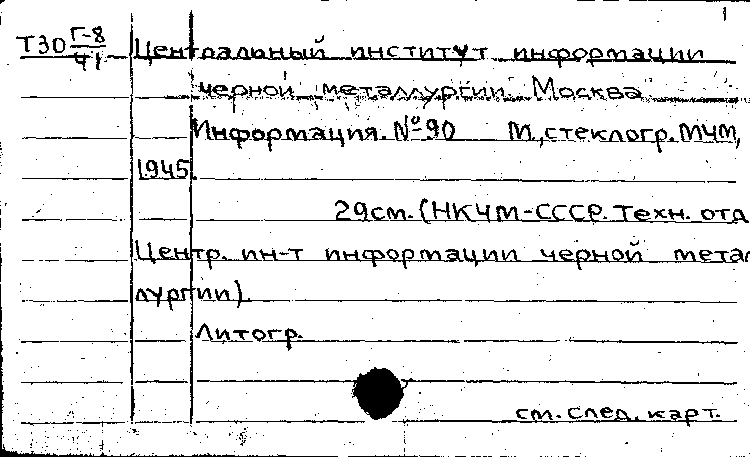 Т30 Г-8/41 Центральный институт информации
черной металлургии. Москва
Информация. № 90 М., стеклогр. МЧМ,
1945.
29см. (НКЧМ-СССР. Техн. отд
Центр. ин-т информации черной метал
лургии).
Литогр.
см. след. карт.